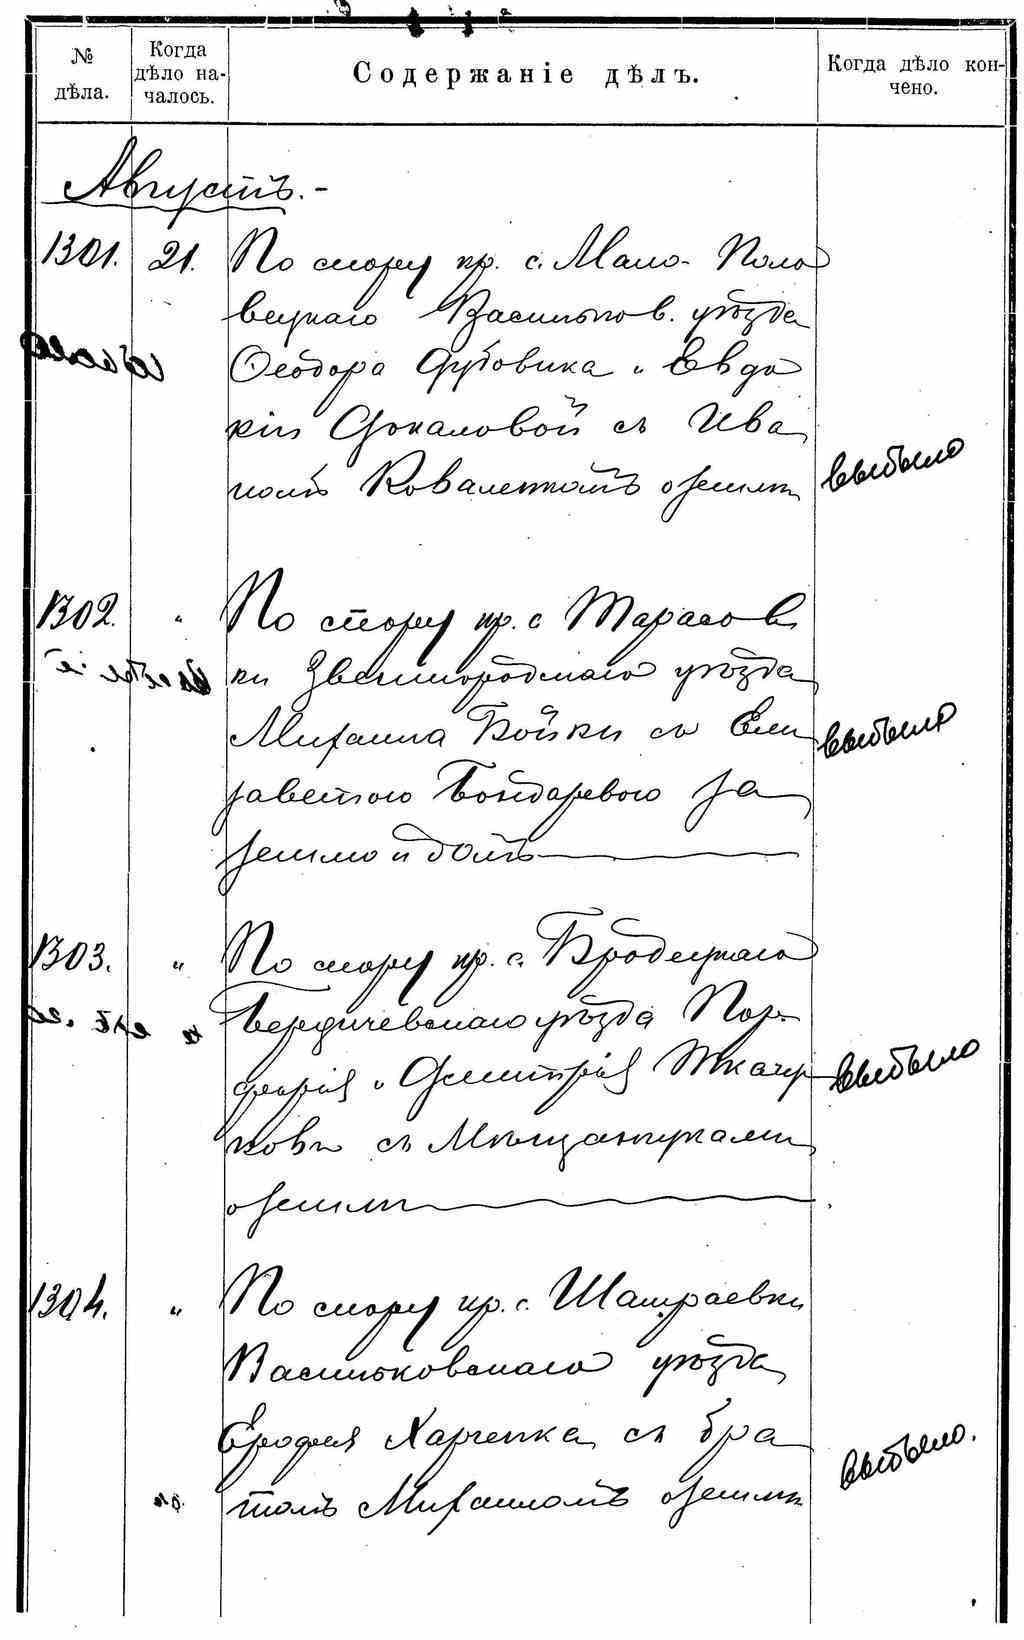 № дѣла.
Когда дѣло началось.
Содержаніе дѣлъ.
Когда дѣло кончено.
Августъ.-
1301. 21. По спору кр. с. Мало-Поло
вецкаго Васильков. уѣзда
Ѳеодора Дубовика и Евдо
кіи Сокаловой съ Ива
номъ Коваленкомъ о землѣ
выбыло
1302. " По спору кр. с. Тарасов
ки Звенигородскаго уѣзда
Михаила Бойки съ Ели
заветою Бондаревою за
землю и домъ
выбыло
1303. " По спору кр. с. Бродецкаго
Бердичевскаго уѣзда Пор-
фирія и Дмитрія Ткачу
ковъ съ Мѣщанчуками
о землѣ
выбыло
1304. " По спору кр. с. Шамраевки
Васильковскаго уѣзда
Ерофея Харченка съ бра
томъ Михаиломъ о землѣ
выбыло.